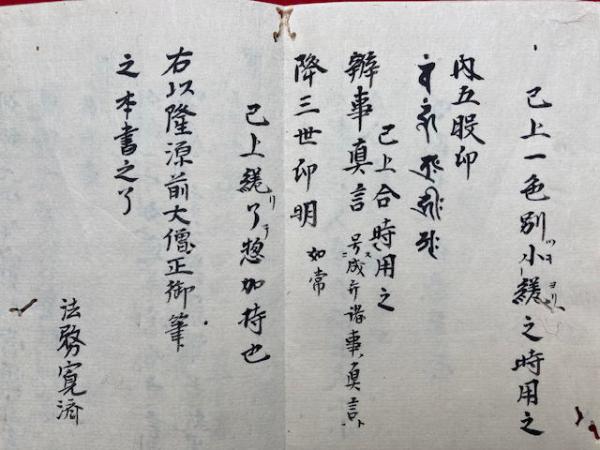 已上一色別小縒之時用之
内五股印
已上合時用之
辨事真言 号成弁諸事真言
降三世印明 如常
已上縒了惣加持也
右以隆源前大僧正御筆
之本書之了
法務寛済